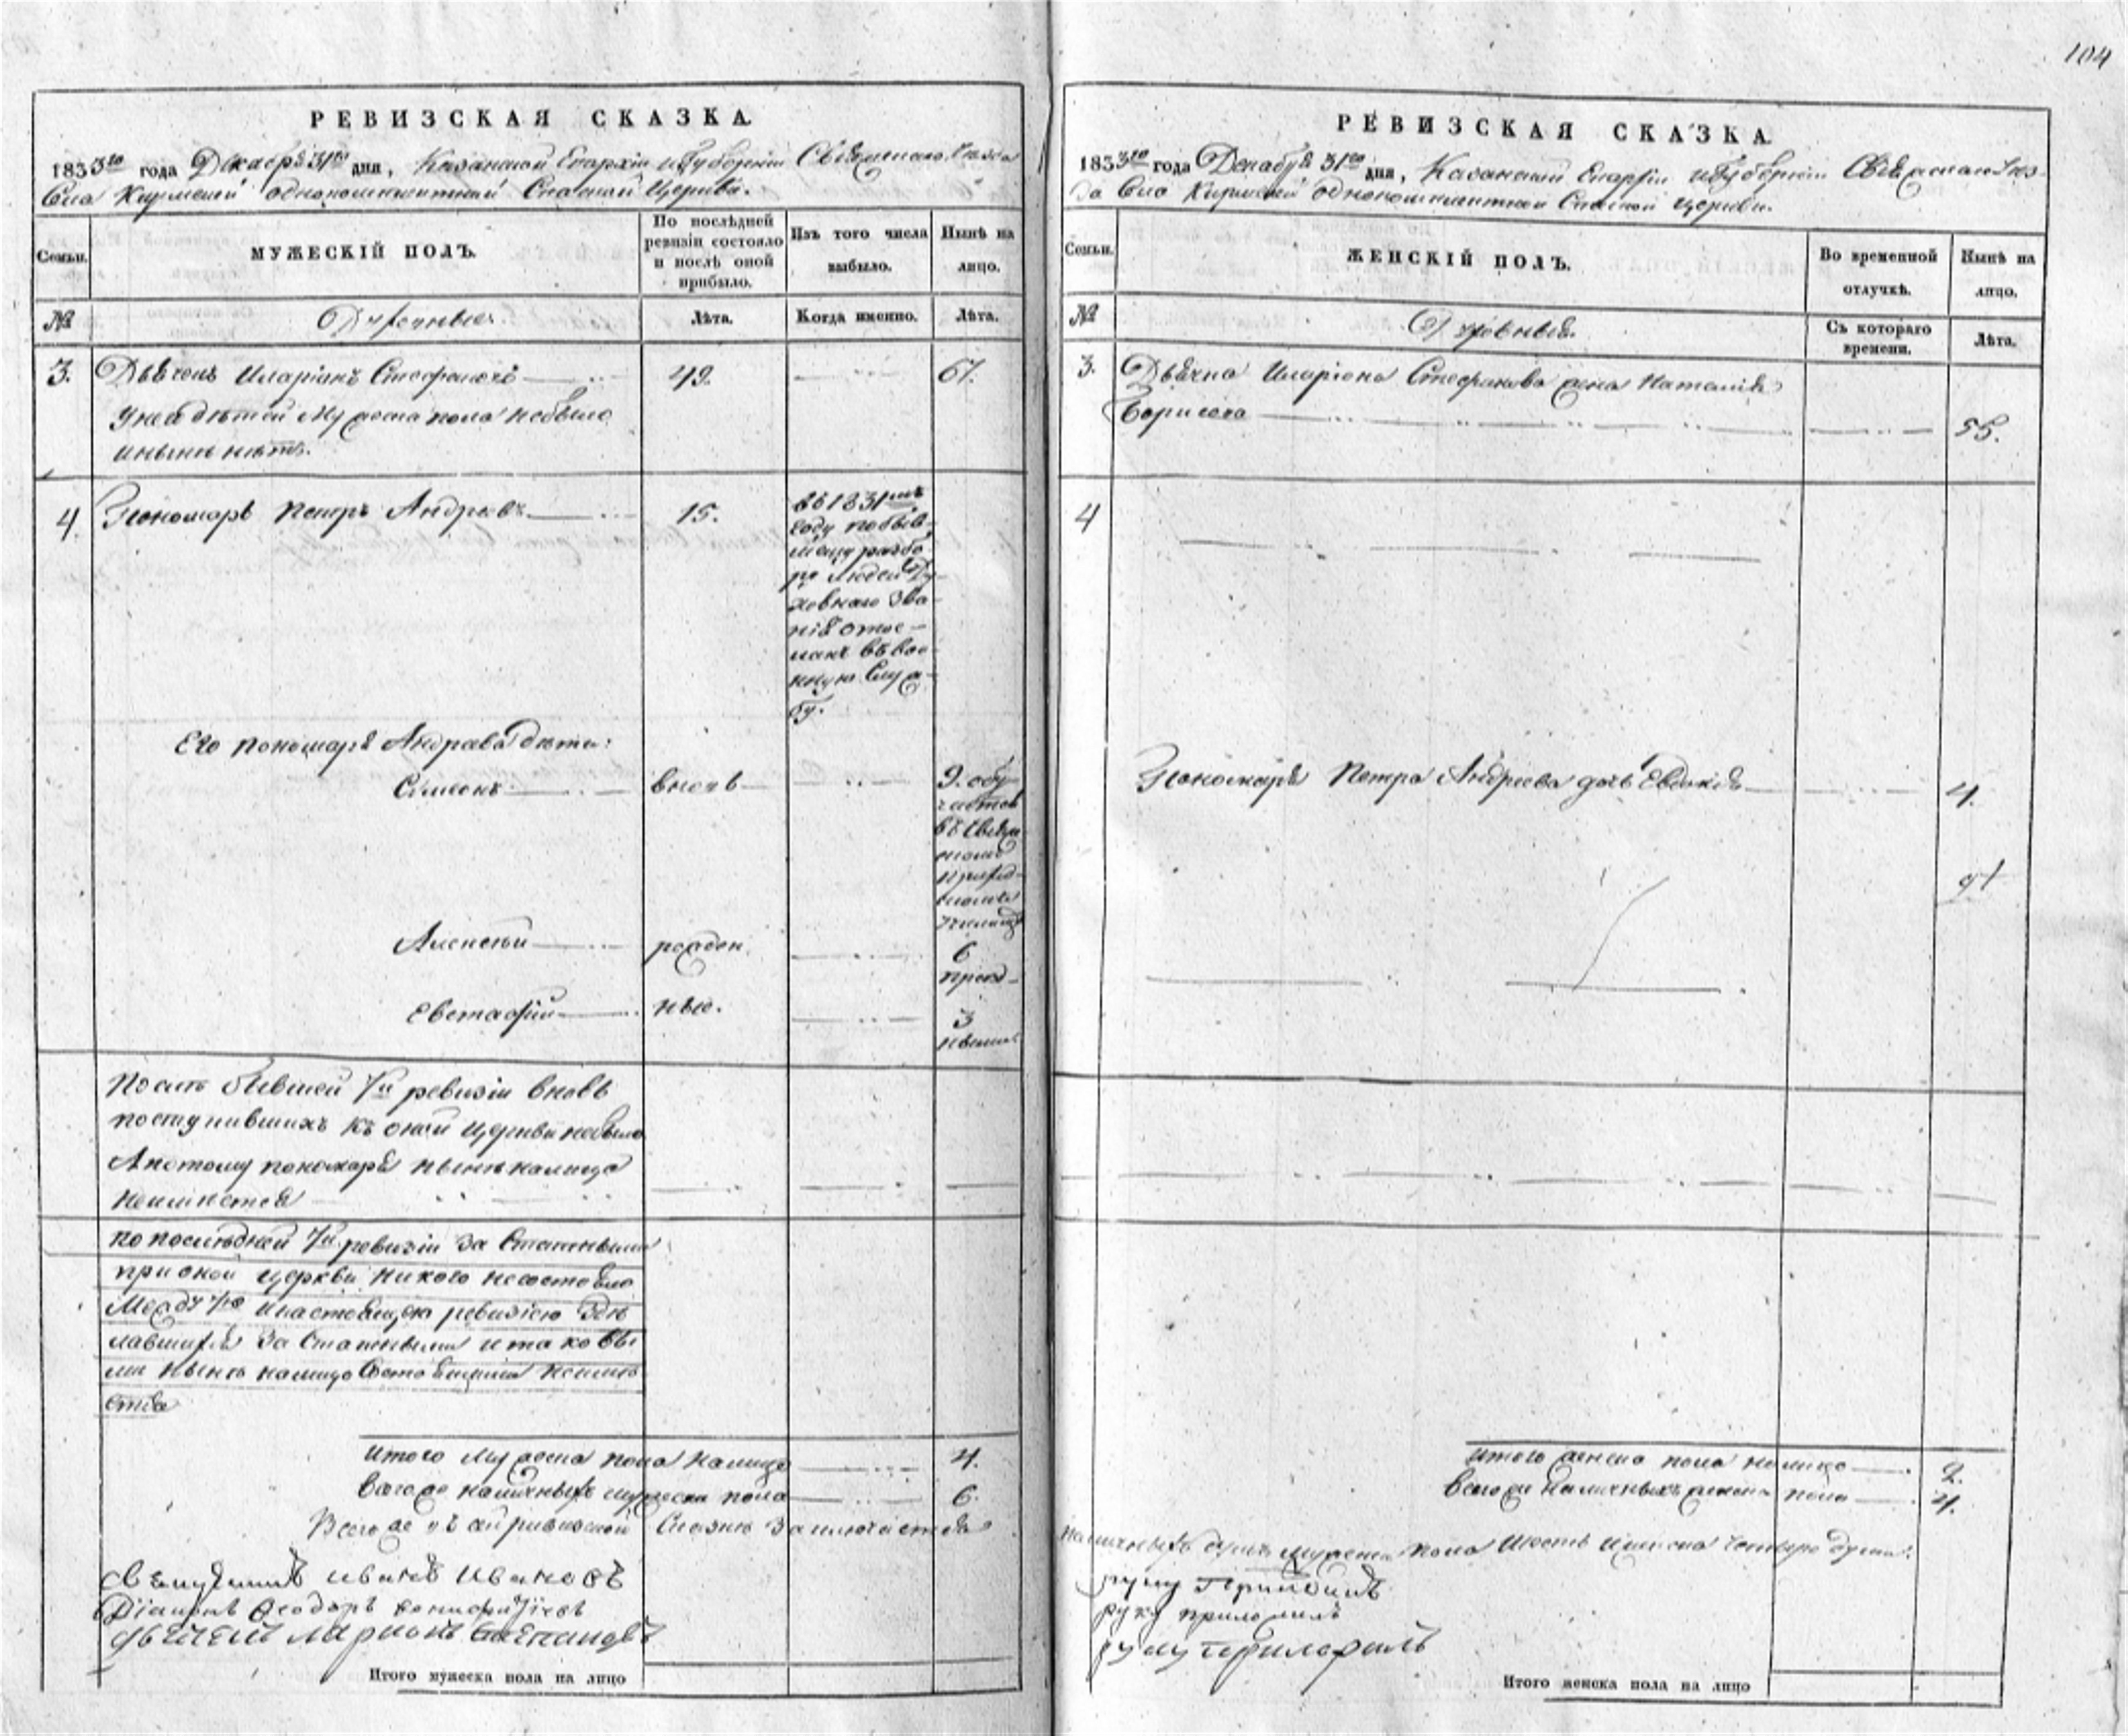 104
РЕВИЗСКАЯ СКАЗКА
1833го года Декабря 31го дня, Казанской Епархіи и Губерніи Свіяжскаго Уезда
Села Кирмелей однокомплектной Спасской Церкви.
Семьи.
МУЖЕСКІЙ ПОЛЪ.
По послѣдней ревизіи состояло и послѣ оной прибыло.
Изъ того числа выбыло.
Нынѣ на лицо.
№
Духовные.
Лѣта.
Когда именно.
Лѣта.
3.
Дьячекъ Иларіонъ Стефановъ
49.
67.
У него дѣтей мужеска пола небыло
и нынѣ нѣтъ.
4
Пономарь Петръ Андреевъ
15.
въ 1831мъ
году по быв-
шему разбо-
ру людей Ду-
ховнаго зва-
нія отос-
ланъ въ вое-
нную служ-
бу.
Его пономаря Андреева дѣти:
Симеонъ
вновь
9. обу
чается
въ Свіяж
скомъ
приход-
скомъ
училищѣ
Алексѣй
рожден
6
Евстафій
ные.
3
Послѣ бывшей 7й ревизіи вновь
поступившихъ къ оной Церкви небыло
А потому пономаря нынѣ налицо
неимѣется
По послѣдней 7й ревизіи за Статными
при оной церкви никого несостояло
Между 7ю и настоящею ревизіею здѣ
лавшихся за Статными и таковы
ми нынѣ налицо состоящими неимѣ
ется
Итого мужеска пола налицо
4.
Всего же наличныхъ мужеска пола
6.
Всего же въ сей ревизской Сказкѣ заключается
Священникъ Иванъ Ивановъ
Діаконъ Ѳеодоръ
дьячекъ ларионъ Степановъ
Итого мужеска пола на лицо
РЕВИЗСКАЯ СКАЗКА
1833го года Декабря 31го дня, Казанской Епархіи и Губерніи Свіяжскаго Уез-
да Села Кирмелей однокомплектной Спасской Церкви.
Семьи.
ЖЕНСКІЙ ПОЛЪ.
Во временной отлучкѣ.
Нынѣ на лицо.
№
Духовныя.
Съ котораго времени.
Лѣта.
3.
Дьячка Иларіона Стефанова жена Наталія
Борисова
55.
4
Пономаря Петра Андреева дочь Евдокія
4.
Итого женска пола налицо
2.
Всего же наличныхъ женска пола
4.
Наличныхъ душъ мужеска пола шесть и женска четыре души.
руку приложилъ
руку приложилъ
руку приложилъ
Итого женска пола на лицо